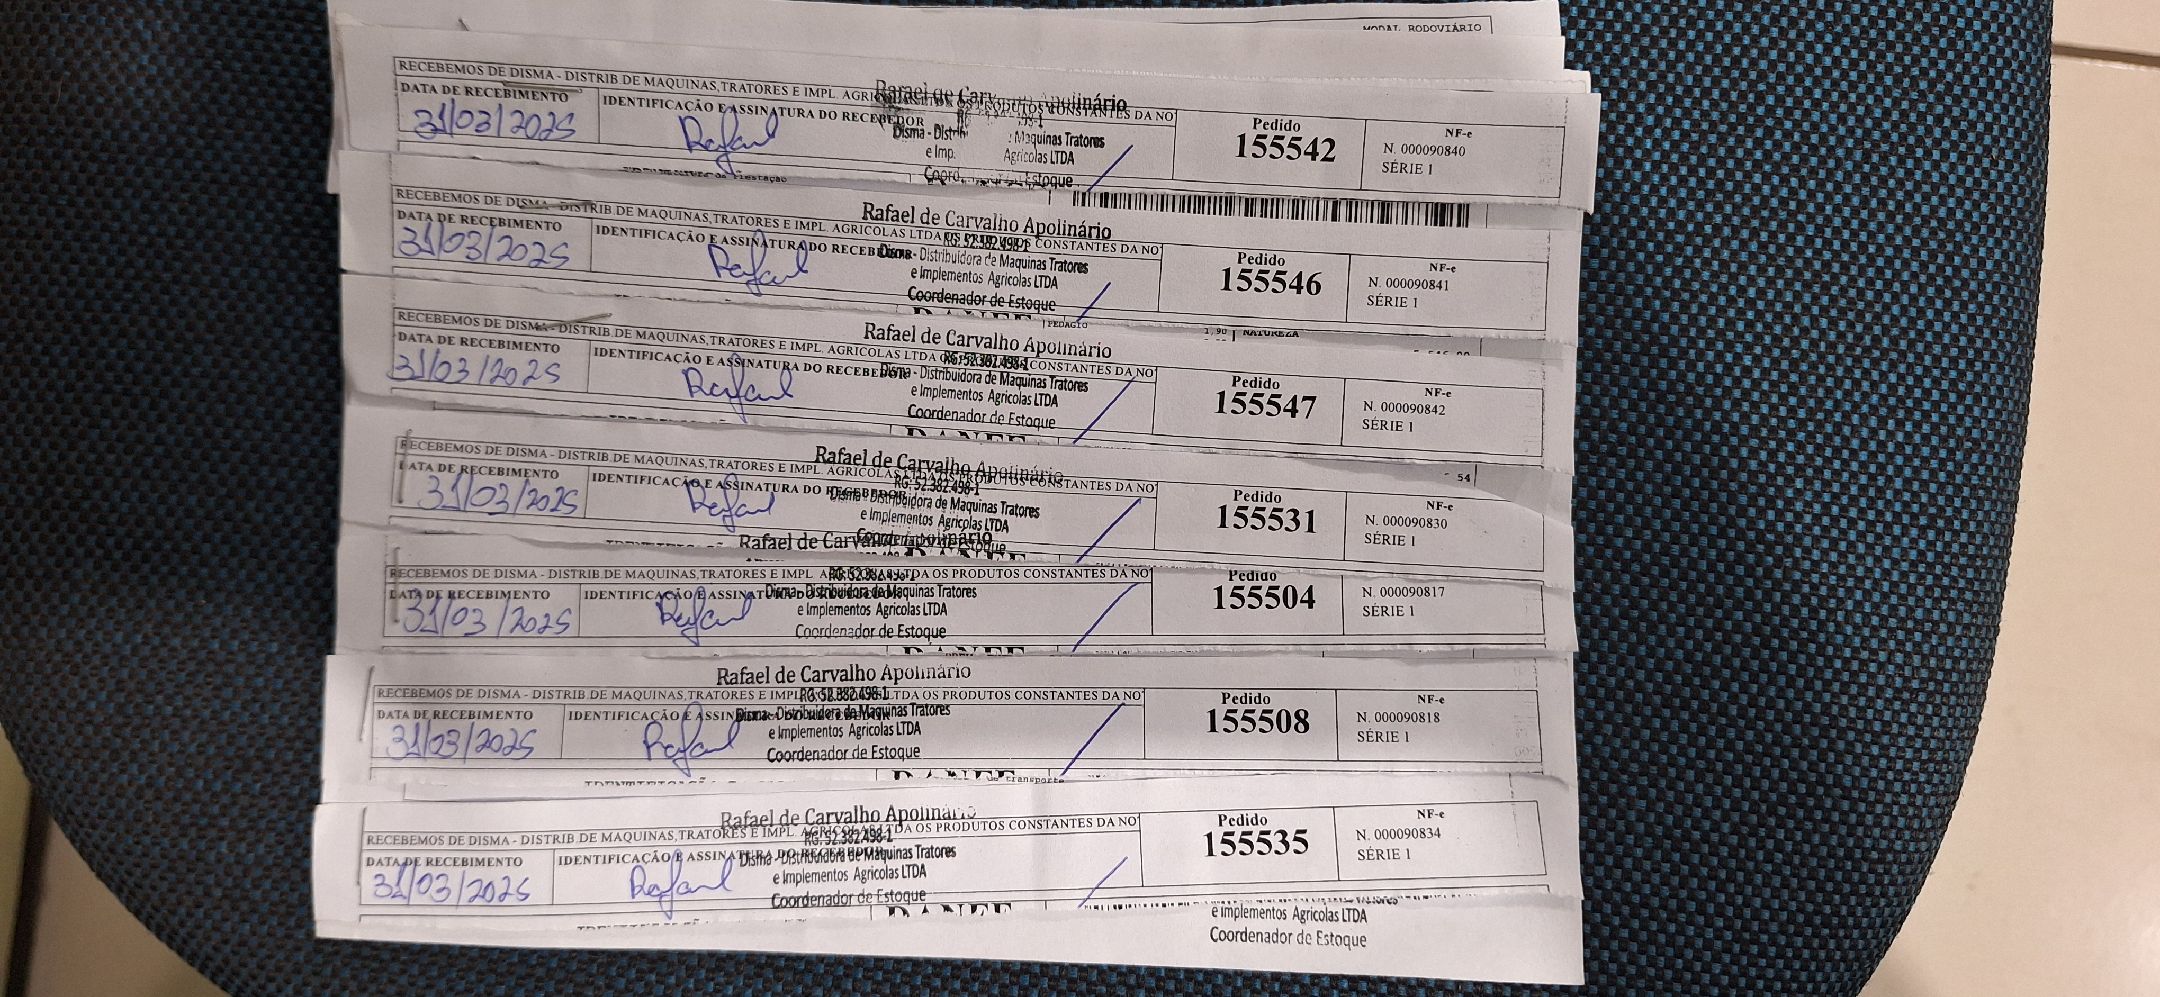 MODAL RODOVIÁRIO
RECEBEMOS DE DISMA - DISTRIB DE MAQUINAS,TRATORES E IMPL. AGRI OS PRODUTOS CONSTANTES DA NO
Rafael de Carv Apolinário
DATA DE RECEBIMENTO
IDENTIFICAÇÃO E ASSINATURA DO RECEBEDOR
31/03/2025
Rafael
Disma - Distrib Maquinas Tratores
e Imp. Agrícolas LTDA
Coord. Estoque
Pedido
155542
NF-e
N. 000090840
SÉRIE 1
RECEBEMOS DE DISMA - DISTRIB DE MAQUINAS,TRATORES E IMPL. AGRICOLAS LTDA OS PRODUTOS CONSTANTES DA NO
Rafael de Carvalho Apolinário
RG: 52.382.498-1
DATA DE RECEBIMENTO
IDENTIFICAÇÃO E ASSINATURA DO RECEBEDOR
31/03/2025
Rafael
Disma - Distribuidora de Maquinas Tratores
e Implementos Agricolas LTDA
Coordenador de Estoque
Pedido
155546
NF-e
N. 000090841
SÉRIE 1
PEDAGIO
1,90
NATUREZA
RECEBEMOS DE DISMA - DISTRIB DE MAQUINAS,TRATORES E IMPL. AGRICOLAS LTDA OS PRODUTOS CONSTANTES DA NO
Rafael de Carvalho Apolinário
RG: 52.382.498-1
DATA DE RECEBIMENTO
IDENTIFICAÇÃO E ASSINATURA DO RECEBEDOR
31/03/2025
Rafael
Disma - Distribuidora de Maquinas Tratores
e Implementos Agricolas LTDA
Coordenador de Estoque
Pedido
155547
NF-e
N. 000090842
SÉRIE 1
DANFE
54
RECEBEMOS DE DISMA - DISTRIB DE MAQUINAS,TRATORES E IMPL. AGRICOLAS LTDA OS PRODUTOS CONSTANTES DA NO
Rafael de Carvalho Apolinário
RG: 52.382.498-1
DATA DE RECEBIMENTO
IDENTIFICAÇÃO E ASSINATURA DO RECEBEDOR
31/03/2025
Rafael
Disma - Distribuidora de Maquinas Tratores
e Implementos Agricolas LTDA
Coordenador de Estoque
Pedido
155531
NF-e
N. 000090830
SÉRIE 1
Rafael de Carvalho Apolinário
RECEBEMOS DE DISMA - DISTRIB DE MAQUINAS,TRATORES E IMPL AGRICOLAS LTDA OS PRODUTOS CONSTANTES DA NO
RG: 52.382.498-1
DATA DE RECEBIMENTO
IDENTIFICAÇÃO E ASSINATURA DO RECEBEDOR
31/03/2025
Rafael
Disma - Distribuidora de Maquinas Tratores
e Implementos Agricolas LTDA
Coordenador de Estoque
Pedido
155504
N. 000090817
SÉRIE 1
Rafael de Carvalho Apolinário
RECEBEMOS DE DISMA - DISTRIB DE MAQUINAS,TRATORES E IMPL AGRICOLAS LTDA OS PRODUTOS CONSTANTES DA NO
RG: 52.382.498-1
DATA DE RECEBIMENTO
IDENTIFICAÇÃO E ASSINATURA DO RECEBEDOR
31/03/2025
Rafael
Disma - Distribuidora de Maquinas Tratores
e Implementos Agricolas LTDA
Coordenador de Estoque
Pedido
155508
NF-e
N. 000090818
SÉRIE 1
DANFE
de transporte
Rafael de Carvalho Apolinário
RECEBEMOS DE DISMA - DISTRIB DE MAQUINAS,TRATORES E IMPL. AGRICOLAS LTDA OS PRODUTOS CONSTANTES DA NO
RG: 52.382.498-1
DATA DE RECEBIMENTO
IDENTIFICAÇÃO E ASSINATURA DO RECEBEDOR
31/03/2025
Rafael
Disma - Distribuidora de Maquinas Tratores
e Implementos Agricolas LTDA
Coordenador de Estoque
Pedido
155535
NF-e
N. 000090834
SÉRIE 1
DANFE
e Implementos Agricolas LTDA
Coordenador de Estoque